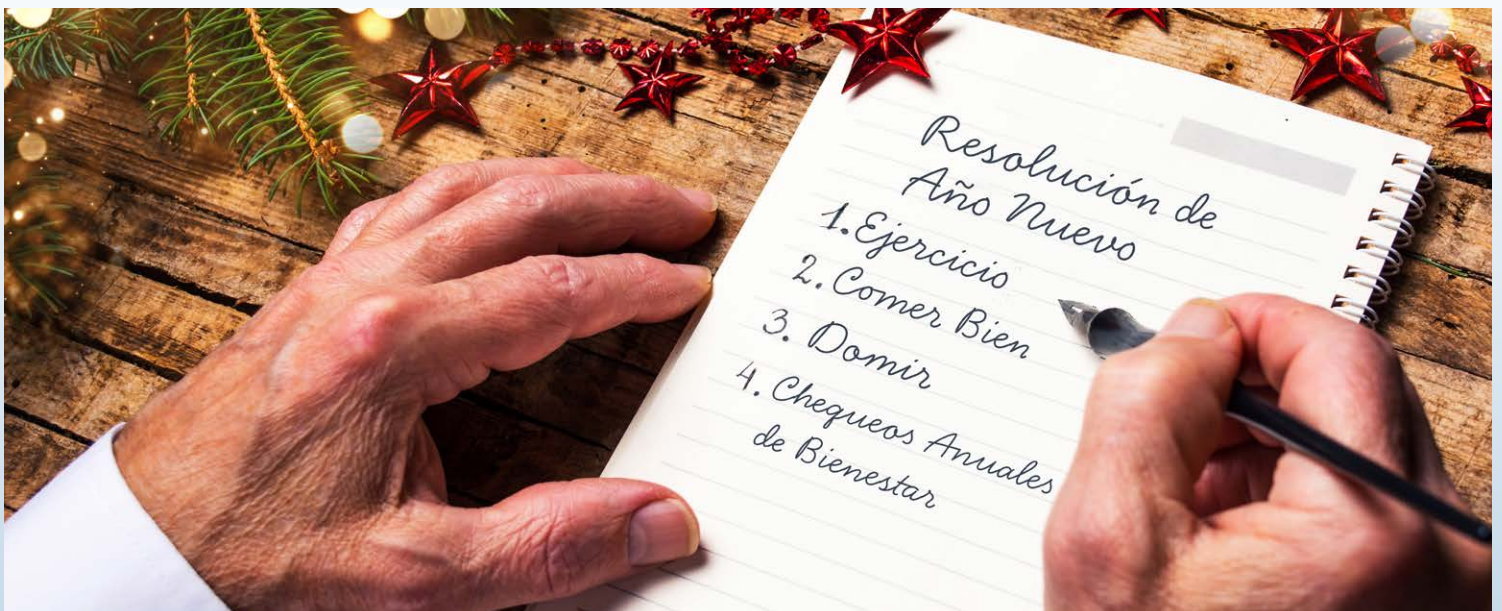 Resolución de
Año Nuevo
1. Ejercicio
2. Comer Bien
3. Domir
4. Chequeos Anuales
de Bienestar